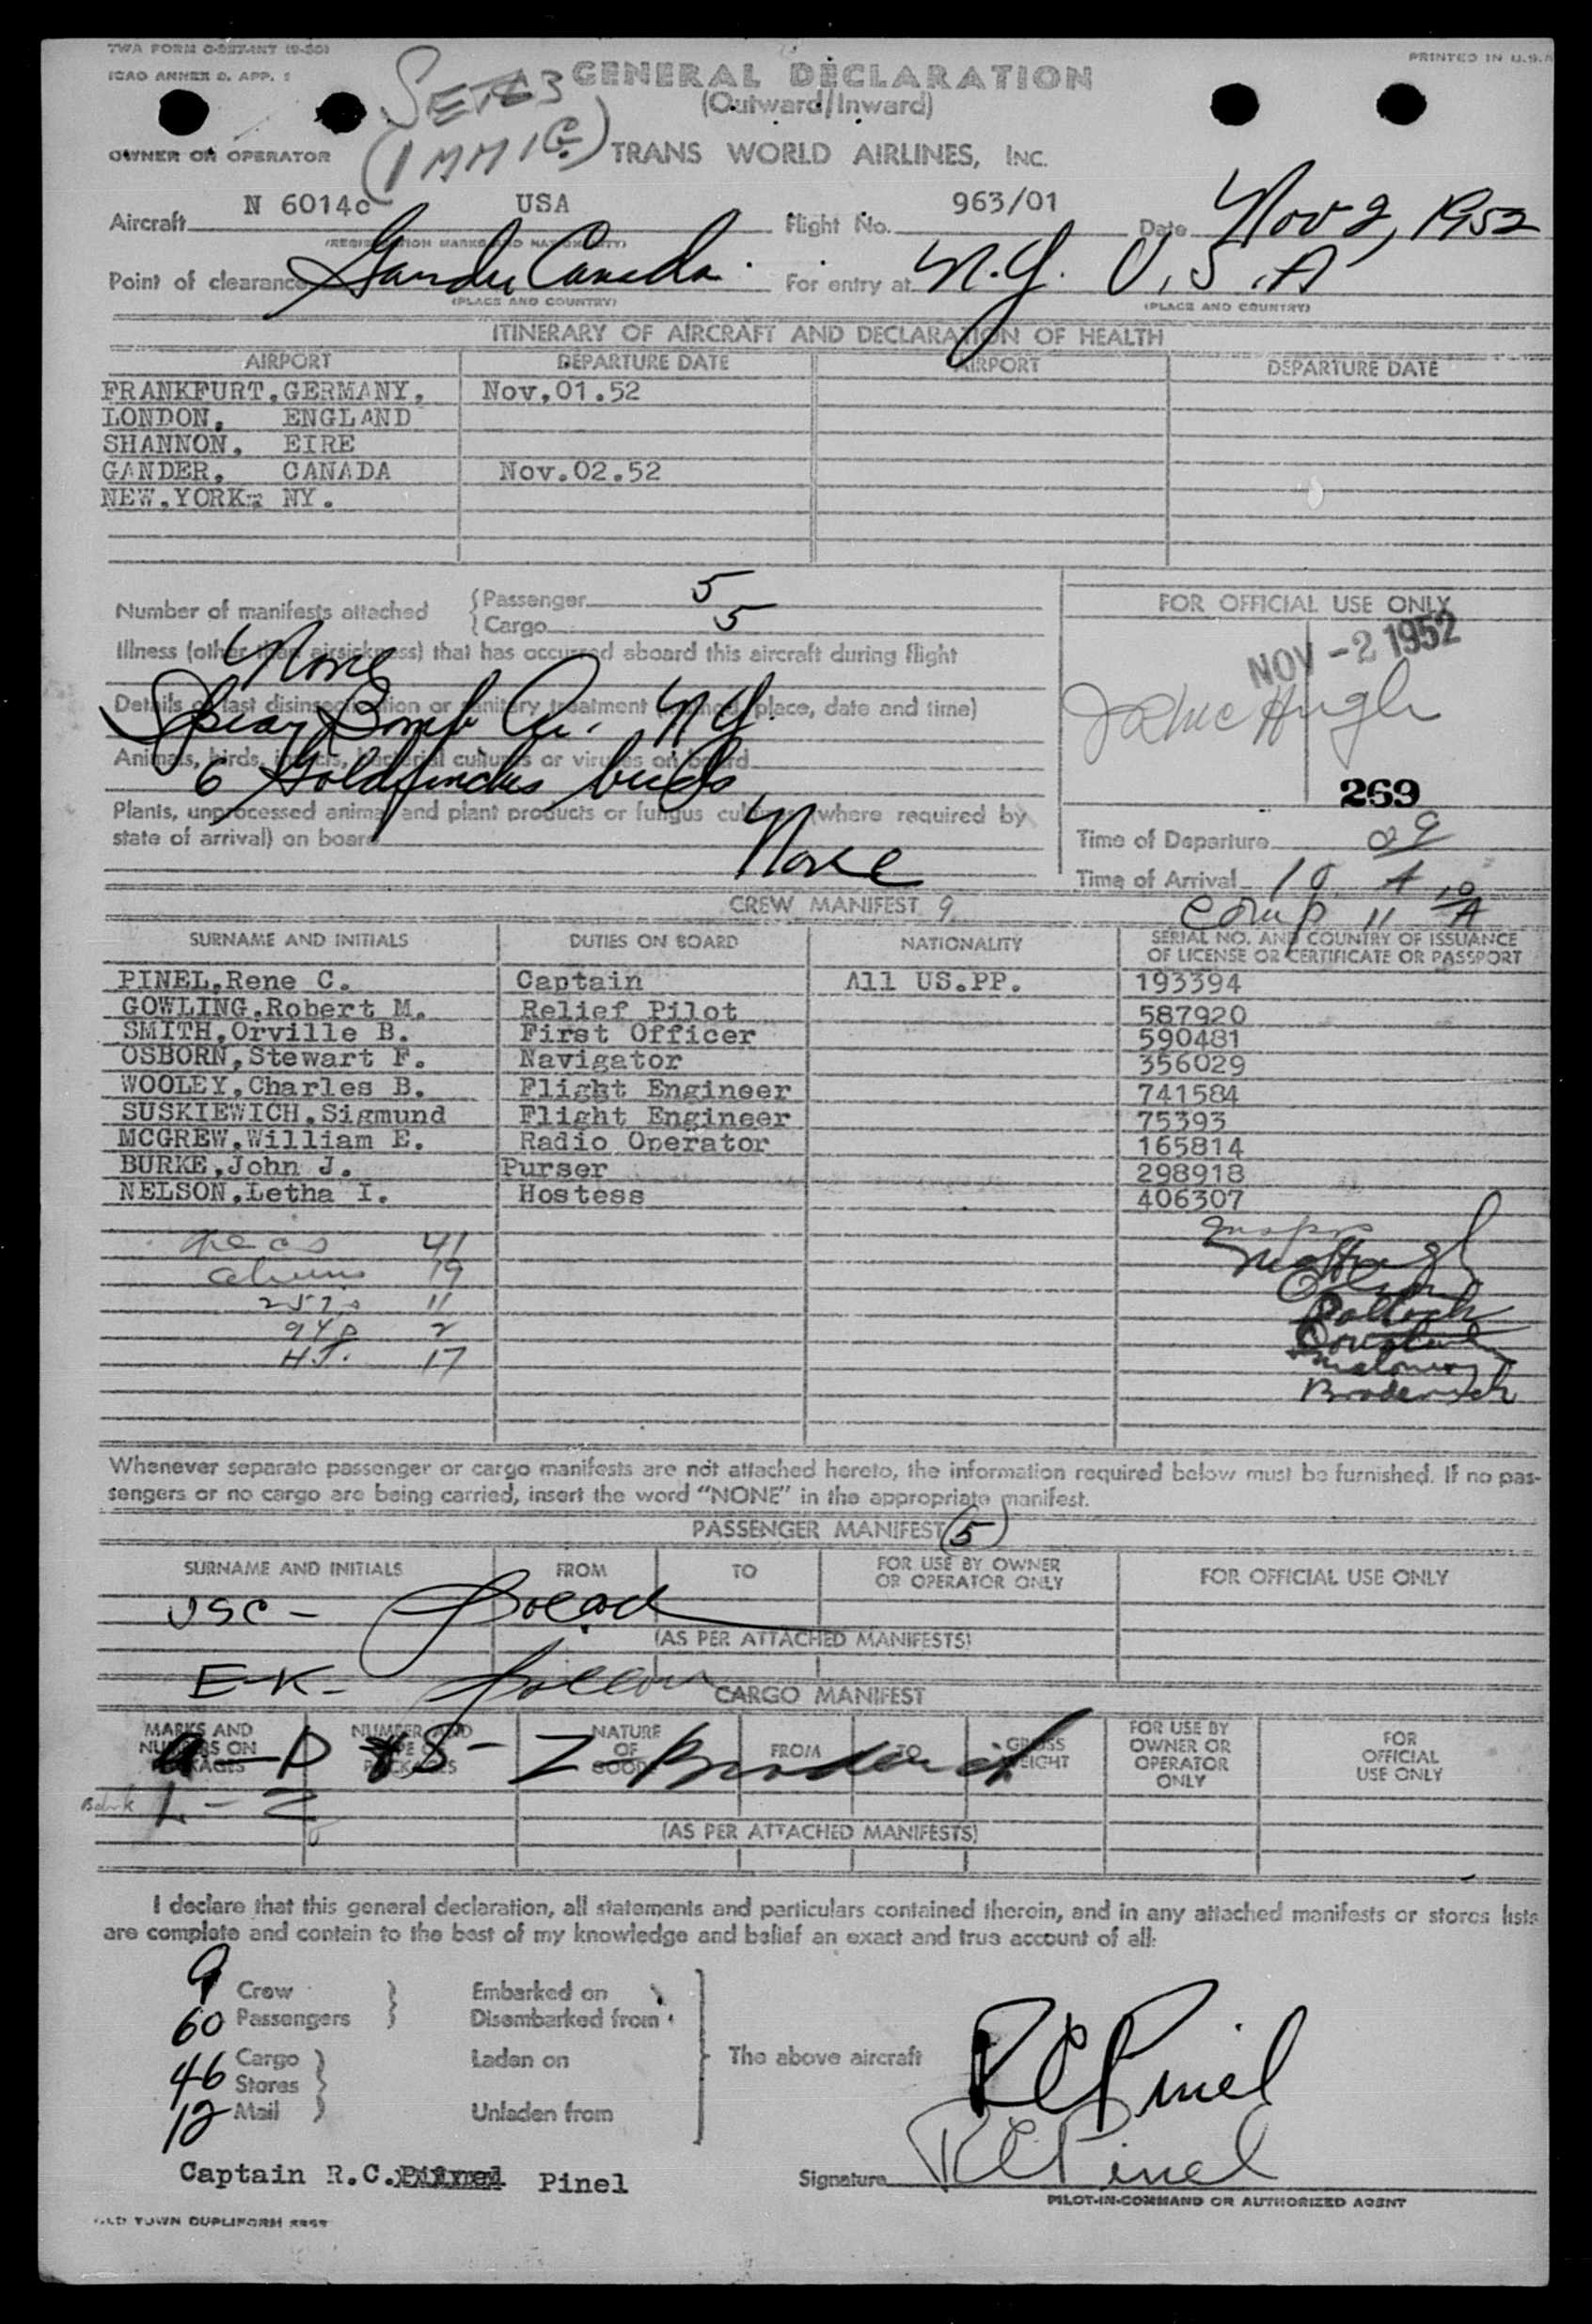 TWA FORM O-257-INT (9-50)
ICAO ANNEX 9. APP. 1
PRINTED IN U.S.A
SETS 3
(IMMIG.)
GENERAL DECLARATION
(Outward/Inward)
OWNER OR OPERATOR TRANS WORLD AIRLINES, INC.
Aircraft N 6014c USA Flight No. 963/01 Date Nov 2, 1952
(REGISTRATION MARKS AND NATIONALITY)
Point of clearance Gander Canada For entry at N.Y. U.S.A
(PLACE AND COUNTRY) (PLACE AND COUNTRY)
ITINERARY OF AIRCRAFT AND DECLARATION OF HEALTH
AIRPORT DEPARTURE DATE AIRPORT DEPARTURE DATE
FRANKFURT,GERMANY, Nov.01.52
LONDON, ENGLAND
SHANNON, EIRE
GANDER, CANADA Nov.02.52
NEW.YORK, NY.
Number of manifests attached
Passenger 5
Cargo 5
FOR OFFICIAL USE ONLY
NOV -2 1952
269
Illness (other than airsickness) that has occurred aboard this aircraft during flight
None
Details of last disinsectization or sanitary treatment (method, place, date and time)
Animals, birds, insects, bacterial cultures or viruses on board
6 Goldfinches birds
Plants, unprocessed animal and plant products or fungus cultures (where required by
state of arrival) on board
None
Time of Departure 09
Time of Arrival 10 A
Comp 11 10 A
CREW MANIFEST 9
SURNAME AND INITIALS DUTIES ON BOARD NATIONALITY SERIAL NO. AND COUNTRY OF ISSUANCE
OF LICENSE OR CERTIFICATE OR PASSPORT
PINEL,Rene C. Captain All US.PP. 193394
GOWLING,Robert M. Relief Pilot 587920
SMITH,Orville B. First Officer 590481
OSBORN,Stewart F. Navigator 356029
WOOLEY,Charles B. Flight Engineer 741584
SUSKIEWICH,Sigmund Flight Engineer 75393
MCGREW,William E. Radio Operator 165814
BURKE,John J. Purser 298918
NELSON,Letha I. Hostess 406307
41
aliens 19
257 11
940 2
H.J. 17
Maloney
Broderick
Whenever separate passenger or cargo manifests are not attached hereto, the information required below must be furnished. If no pas-
sengers or no cargo are being carried, insert the word "NONE" in the appropriate manifest.
PASSENGER MANIFEST 5
SURNAME AND INITIALS FROM TO FOR USE BY OWNER
OR OPERATOR ONLY FOR OFFICIAL USE ONLY
USC -
(AS PER ATTACHED MANIFESTS)
E-K-
CARGO MANIFEST
MARKS AND
NUMBERS ON
PACKAGES
NUMBER AND
TYPE OF
PACKAGES
NATURE
OF
GOODS
FROM
TO
GROSS
WEIGHT
FOR USE BY
OWNER OR
OPERATOR
ONLY
FOR
OFFICIAL
USE ONLY
a-D S-Z-Broderick
L-Z
(AS PER ATTACHED MANIFESTS)
I declare that this general declaration, all statements and particulars contained therein, and in any attached manifests or stores lists
are complete and contain to the best of my knowledge and belief an exact and true account of all:
9 Crew Embarked on
60 Passengers Disembarked from
46 Cargo Laden on The above aircraft
Stores
12 Mail Unladen from
R C Pinel
Captain R.C. Pinel Signature R C Pinel
PILOT-IN-COMMAND OR AUTHORIZED AGENT
OLD TOWN DUPLIFORM